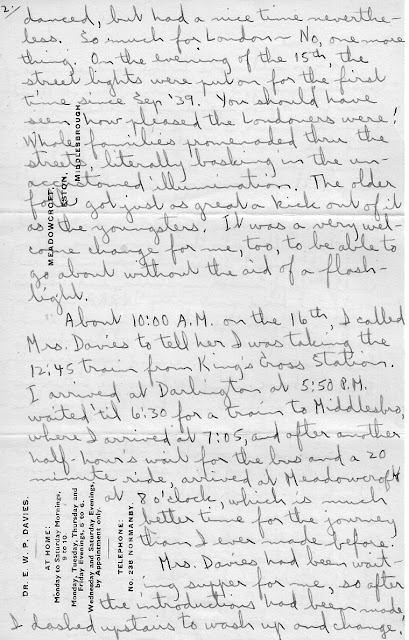 2.
danced, but had a nice time neverthe-
less. So much for London — No, one more
thing. On the evening of the 15th, the
street lights were put on for the first
time since Sep '39. You should have
seen how pleased the Londoners were!
Whole families promenaded thru the
streets, literally basking in the un-
accustomed illumination. The older
folk got just as great a kick out of it
as the youngsters. It was a very wel-
come change for me, too, to be able to
go about without the aid of a flash-
light.
About 10:00 A.M. on the 16th, I called
Mrs. Davies to tell her I was taking the
12:45 train from King's Cross Station.
I arrived at Darlington at 5:50 P.M.
waited 'til 6:30 for a train to Middlesbro,
where I arrived at 7:05, and after another
half-hour's wait for the bus and a 20
minute ride, arrived at Meadowcroft
at 8 o'clock, which is much
better time for the journey
than I ever made before.
Mrs. Davies had been wait-
ing supper for me, so after
the introductions had been made
I dashed upstairs to wash up and change
MEADOWCROFT,
ESTON,
MIDDLESBROUGH.
DR. E. W. P. DAVIES.
AT HOME:
Monday to Saturday Mornings,
9 to 10.
Monday, Tuesday, Thursday and
Friday Evenings, 5 to 6.
Wednesday and Saturday Evenings,
by Appointment only.
TELEPHONE:
No. 238 NORMANBY.